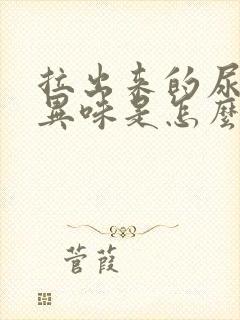 拉出来的尿
異味是怎麼
菅葭